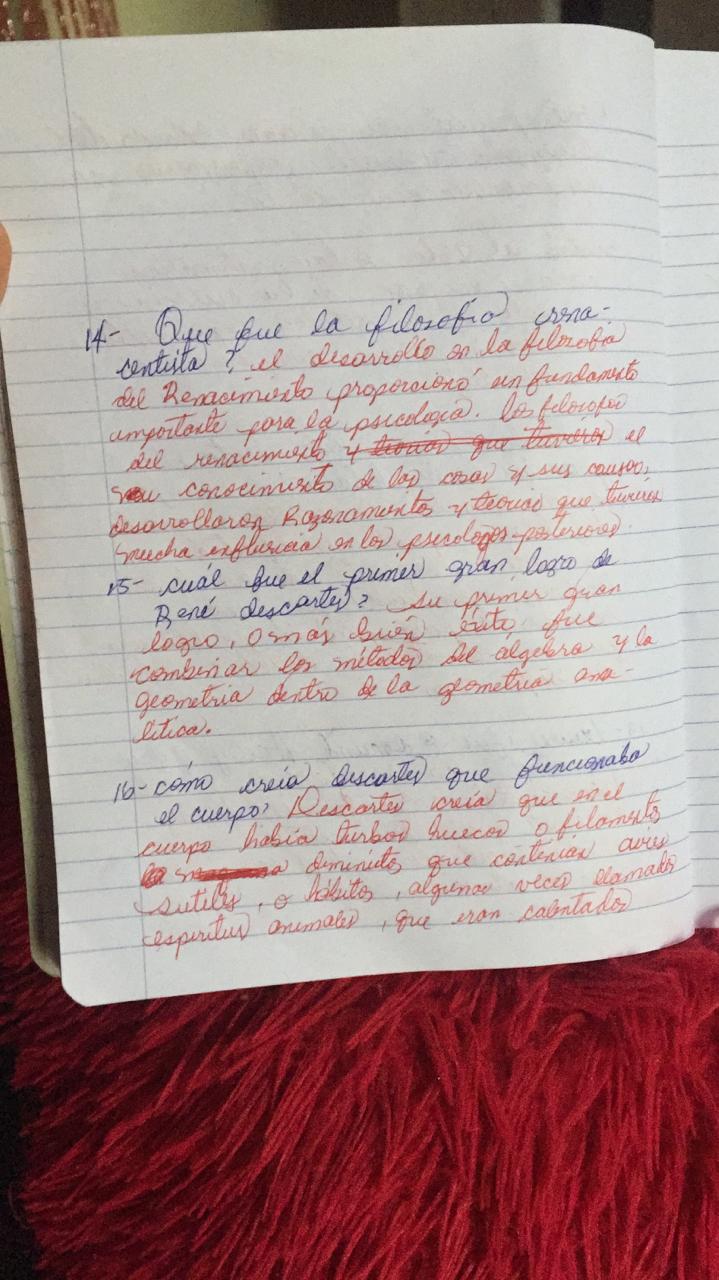 14- Que fue la filosofía rena-
centista? el desarrollo en la filosofia
del Renacimiento proporcionó un fundamento
importante para la psicología. los filosofos
del renacimiento y teorias que tuvieron el
conocimiento de las cosas y sus causas,
desarrollaron Razonamientos y teorias que tuvieron
mucha influencia en los psicologos posteriores.
15- cuál fue el primer gran logro de
René descartes? su primer gran
logro, o más bién éxito, fue
combinar los métodos del álgebra y la
geometria dentro de la geometria ana-
litica.
16- cómo creía descartes que funcionaba
el cuerpo? Descartes creía que en el
cuerpo había turbos huecos o filamentos
diminutos que contenian aires
sutiles, o hábitos, algunas veces llamados
espiritus animales, que eran calentados